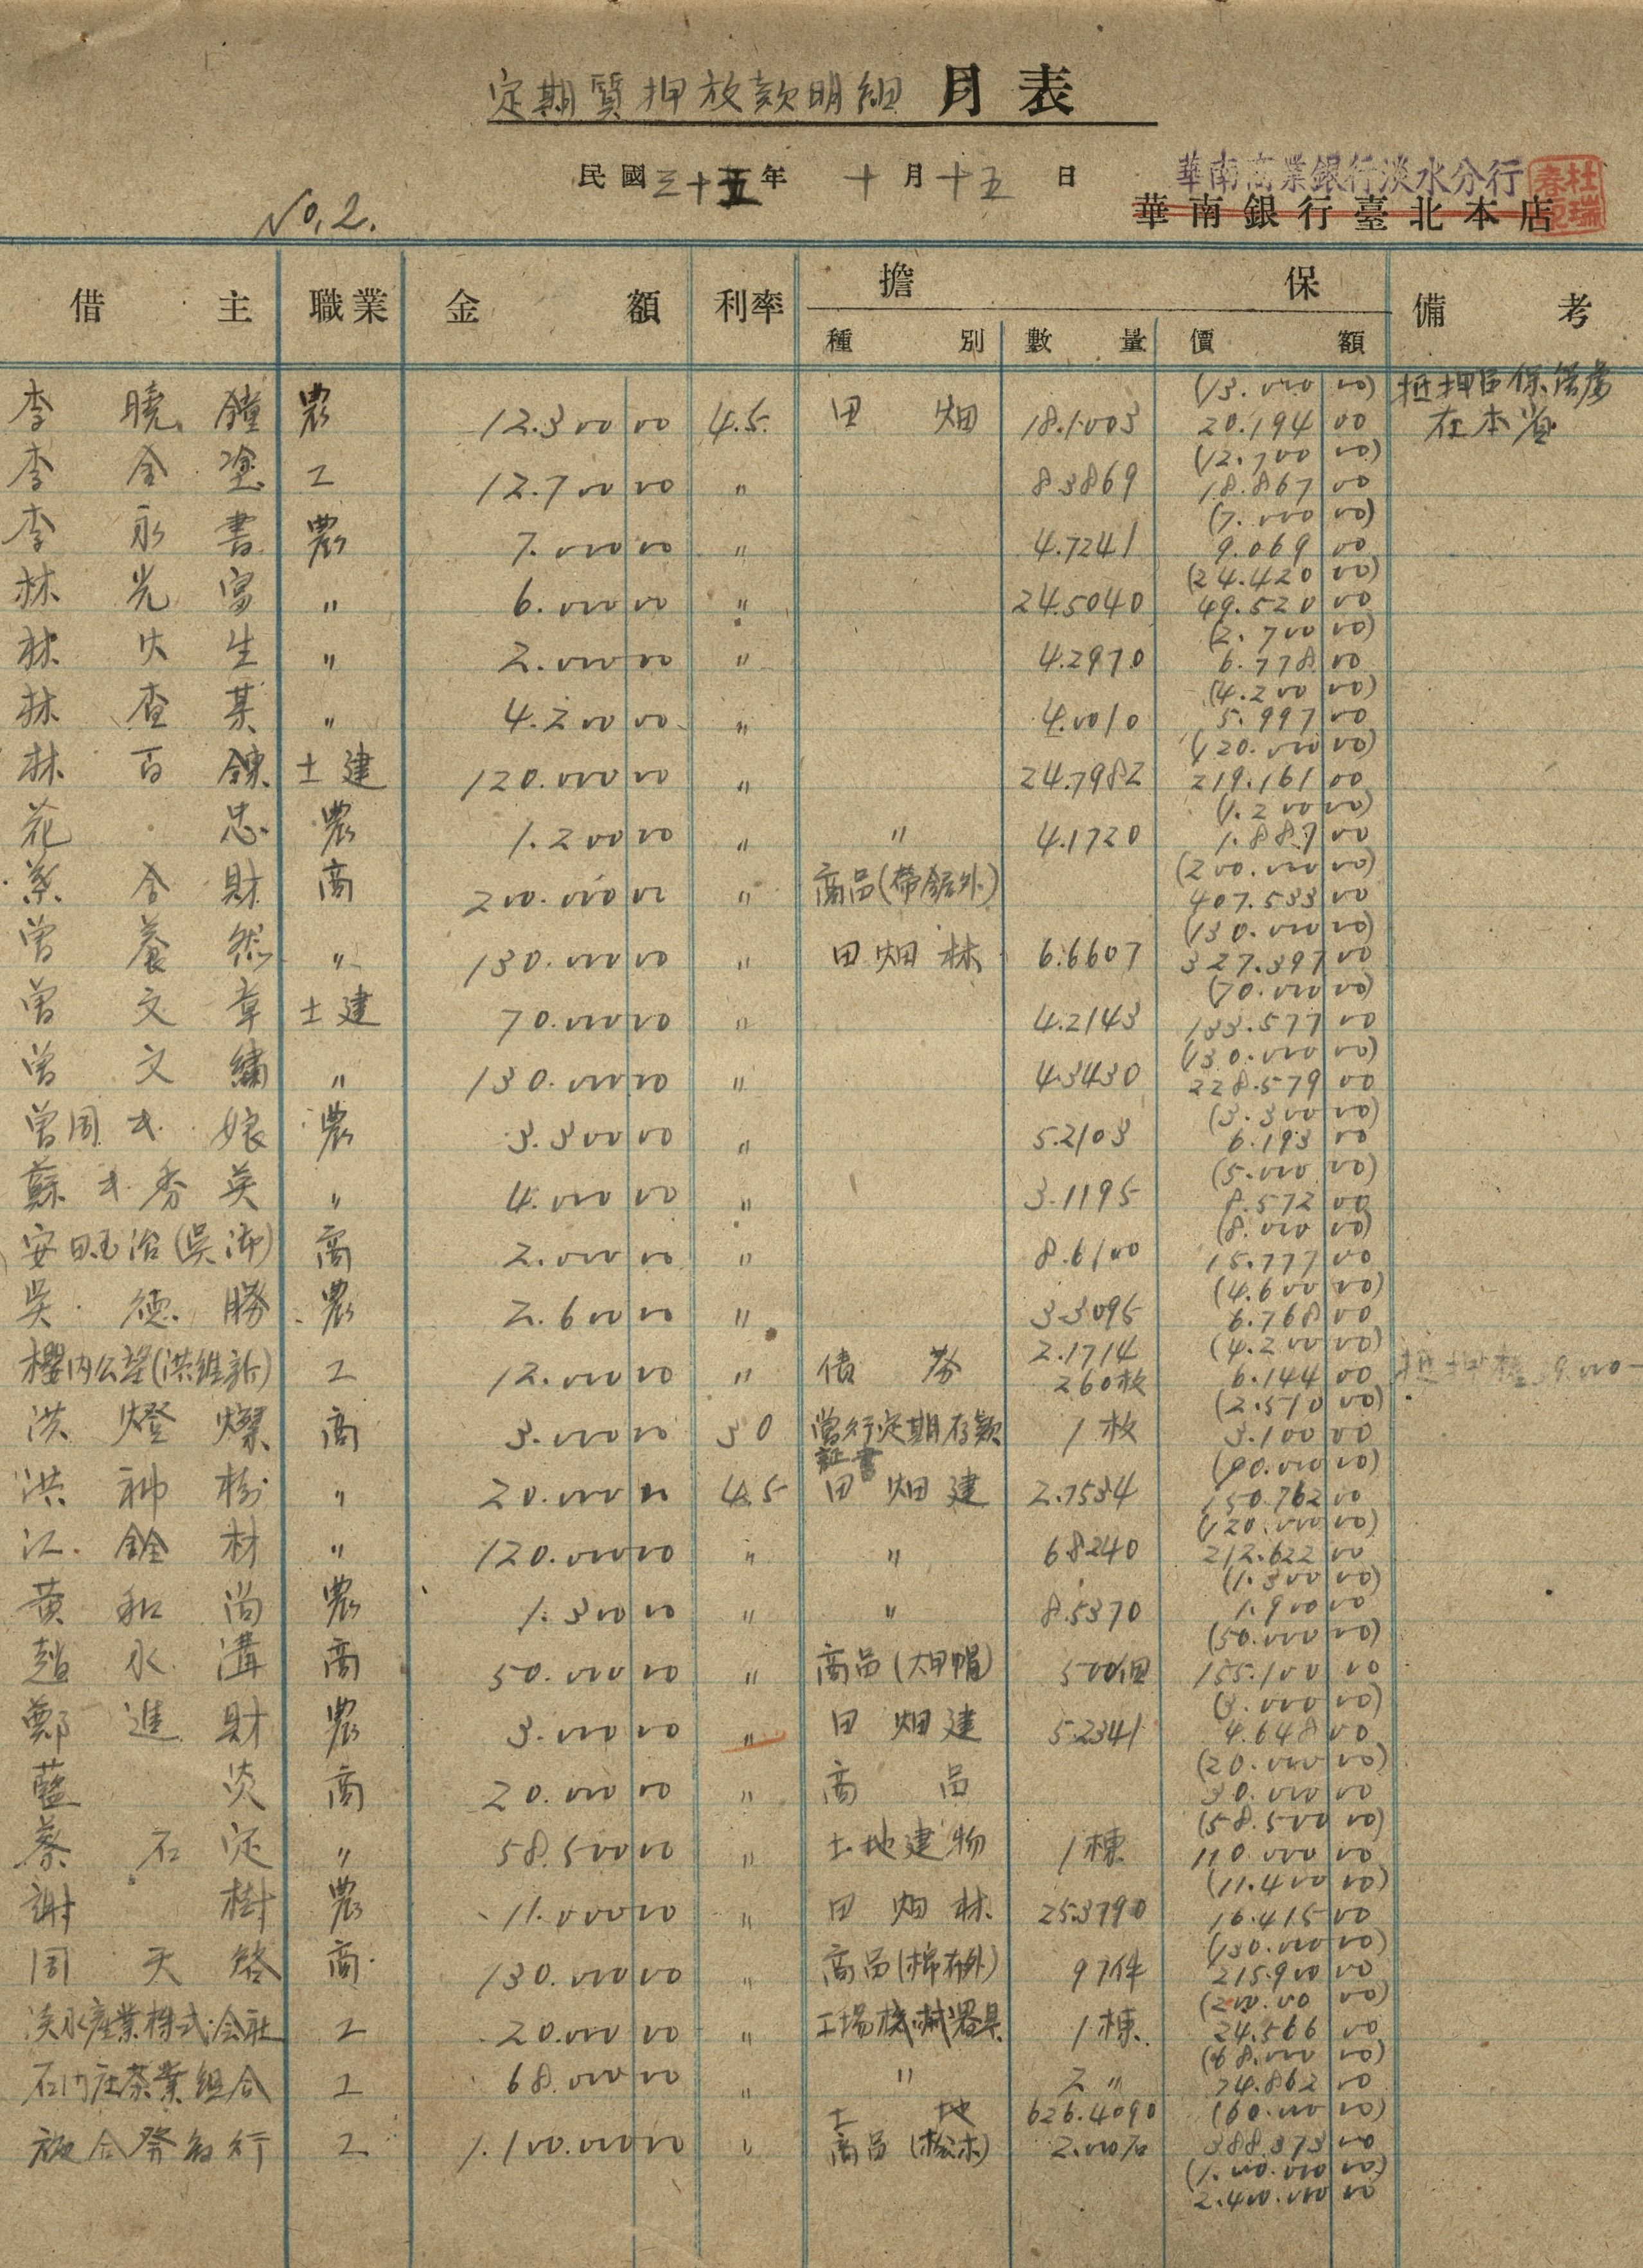 定期質押放款明細 月表
民國三十五年 十月十五日
華南商業銀行淡水分行
華南銀行臺北本店
杜瑞春
No. 2.
借主 職業 金額 利率 擔保 備考
種別 數量 價額
(13.000 00) 抵押品保管處
李曉鐘 農 12.300 00 4.5 田畑 18.1003 20.194 00 在本省
(12.700 00)
李金塗 工 12.700 00 〃 8.3869 18.867 00
(7.000 00)
李永書 農 7.000 00 〃 4.7241 9.069 00
(24.420 00)
林光富 〃 6.000 00 〃 24.5040 49.520 00
(2.700 00)
林火生 〃 2.000 00 〃 4.2970 6.778 00
(4.200 00)
林查某 〃 4.200 00 〃 4.0010 5.997 00
(120.000 00)
林百鍊 土建 120.000 00 〃 24.7982 219.161 00
(1.200 00)
花忠 農 1.200 00 〃 〃 4.1720 1.887 00
(200.000 00)
葉金財 商 200.000 00 〃 商品(帶鋸外) 407.533 00
(130.000 00)
曾養然 〃 130.000 00 〃 田畑林 6.6607 327.397 00
(70.000 00)
曾文章 土建 70.000 00 〃 4.2143 133.577 00
(130.000 00)
曾文繡 〃 130.000 00 〃 4.3430 228.579 00
(3.300 00)
曾周氏娘 農 3.300 00 〃 5.2103 6.193 00
(5.000 00)
蘇氏秀英 〃 4.000 00 〃 3.1195 8.572 00
(8.000 00)
安田玉治(吳沛) 商 2.000 00 〃 8.6100 15.777 00
(4.600 00)
吳德勝 農 2.600 00 〃 3.3095 6.768 00
2.1714 (4.200 00)
櫻內公望(洪維新) 工 12.000 00 〃 債券 260枚 6.144 00
(2.510 00)
洪燈燦 商 3.000 00 3.0 當行定期存款証書 1枚 3.100 00
(90.000 00)
洪神樹 〃 20.000 00 4.5 田畑建 2.7534 150.762 00
(120.000 00)
江金材 〃 120.000 00 〃 〃 6.8240 212.622 00
(1.300 00)
黃和尚 農 1.300 00 〃 〃 8.5370 1.900 00
(50.000 00)
趙水溝 商 50.000 00 〃 商品(大甲帽) 500個 155.100 00
(3.000 00)
鄭進財 農 3.000 00 〃 田畑建 5.2341 4.648 00
(20.000 00)
藍炎 商 20.000 00 〃 商品 30.000 00
(58.500 00)
蔡石定 〃 58.500 00 〃 土地建物 1棟 110.000 00
(11.400 00)
謝樹 農 11.000 00 〃 田畑林 25.3790 16.415 00
(130.000 00)
周天啓 商 130.000 00 〃 商品(棉布外) 97件 215.900 00
(200.00 00)
淡水產業株式会社 工 20.000 00 〃 工場機械器具 1棟 24.566 00
(68.000 00)
石門庄茶業組合 工 68.000 00 〃 〃 2〃 74.862 00
土地 626.4090 (60.000 00)
施合發商行 工 1.100.000 00 〃 商品(松木) 2.000石 388.373 00
(1.000.000 00)
2.400.000 00